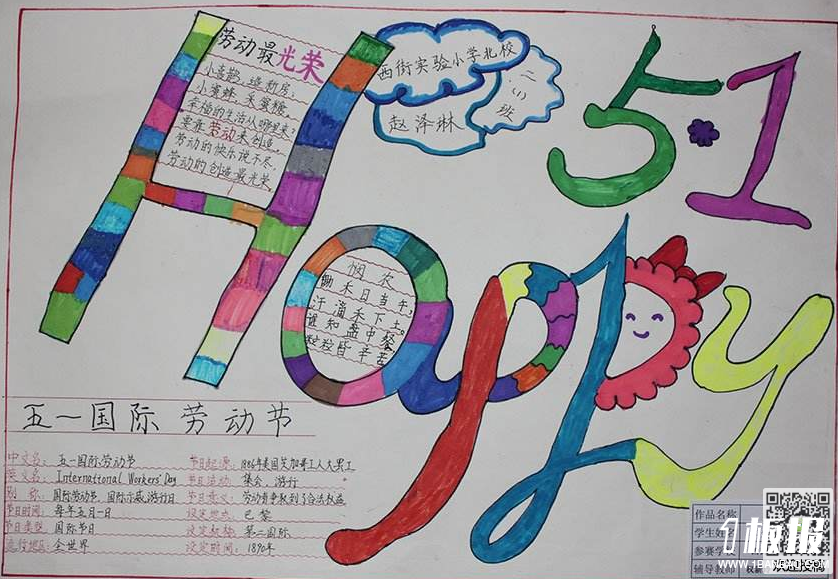 劳动最光荣
小喜鹊,造新房;
小蜜蜂,采蜜糖。
幸福的生活从哪里来?
要靠劳动来创造。
劳动的快乐说不尽,
劳动的创造最光荣。
西街实验小学北校
二(1)班
赵泽琳
5·1
Happy
悯农
锄禾日当午,
汗滴禾下土。
谁知盘中餐
粒粒皆辛苦
五一国际劳动节
中文名:五一国际劳动节
节日起源:1886年美国芝加哥工人大罢工
英文名:International Workers' Day
节日活动:集会、游行
别称:国际劳动节、国际示威游行日
节日意义:劳动者争取到了合法权益
节日时间:每年五月一日
设定地点:巴黎
节日类型:国际节日
设定机构:第二国际
流行地区:全世界
设定时间:1890年
作品名称
学生姓名
参赛学
辅导教师
板报
WWW.1BANBAO.COM
欢迎投稿